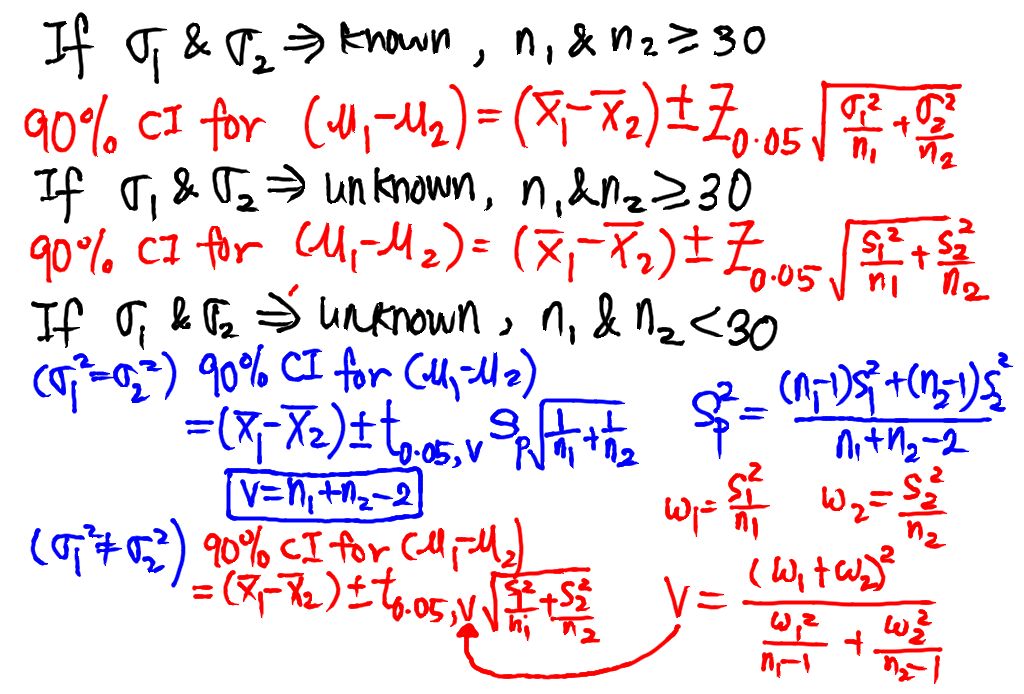 If σ₁ & σ₂ ⇒ known, n₁ & n₂ ≥ 30
90% CI for (μ₁-μ₂) = (x̄₁-x̄₂) ± Z₀.₀₅ √(σ₁²/n₁ + σ₂²/n₂)
If σ₁ & σ₂ ⇒ unknown, n₁ & n₂ ≥ 30
90% CI for (μ₁-μ₂) = (x̄₁-x̄₂) ± Z₀.₀₅ √(S₁²/n₁ + S₂²/n₂)
If σ₁ & σ₂ ⇒ unknown, n₁ & n₂ < 30
(σ₁²=σ₂²) 90% CI for (μ₁-μ₂)
= (x̄₁-x̄₂) ± t₀.₀₅,ᵥ Sₚ √(1/n₁ + 1/n₂)
Sₚ² = ((n₁-1)S₁² + (n₂-1)S₂²)/(n₁+n₂-2)
v = n₁+n₂-2
ω₁ = S₁²/n₁ ω₂ = S₂²/n₂
(σ₁²≠σ₂²) 90% CI for (μ₁-μ₂)
= (x̄₁-x̄₂) ± t₀.₀₅,ᵥ √(S₁²/n₁ + S₂²/n₂)
v = (ω₁+ω₂)²/(ω₁²/(n₁-1) + ω₂²/(n₂-1))